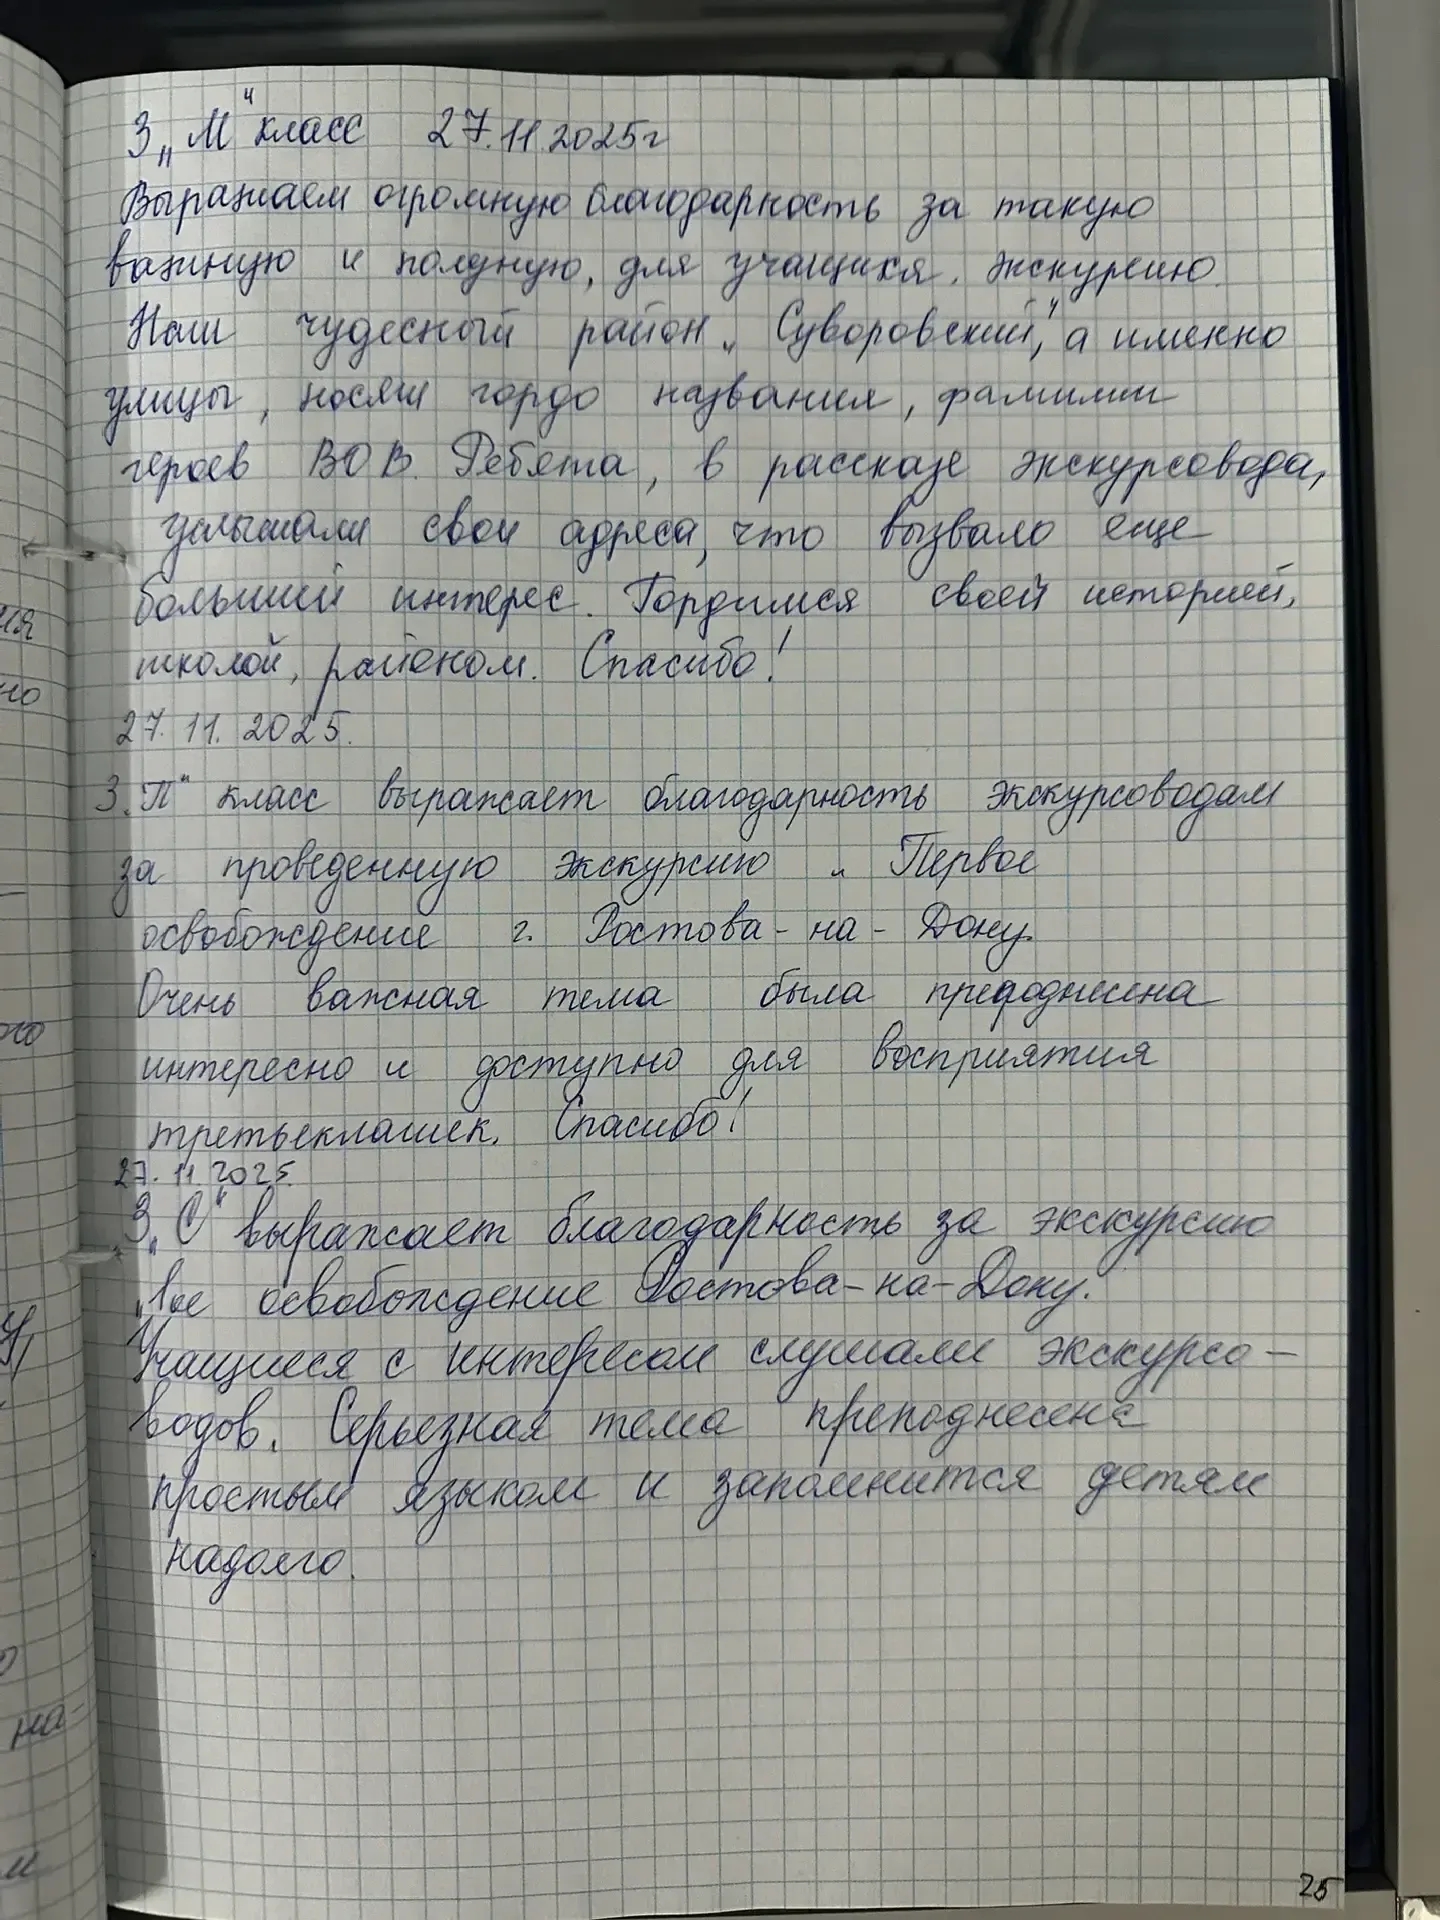 3 „М“ класс 27.11.2025г
Выражаем огромную благодарность за такую
важную и полезную, для учащихся, экскурсию.
Наш чудесный район „Суворовский“, а именно
улицы, носят гордо названия, фамилии
героев ВОВ. Ребята, в рассказе экскурсовода,
услышали свои адреса, что вызвало еще
больший интерес. Гордимся своей историей,
школой, районом. Спасибо!
27.11.2025.
3„П“ класс выражает благодарность экскурсоводам
за проведенную экскурсию „Первое
освобождение г. Ростова-на-Дону.
Очень важная тема была преподнесена
интересно и доступно для восприятия
третьеклашек. Спасибо!
27.11.2025.
3„С“ выражает благодарность за экскурсию
„1ое освобождение Ростова-на-Дону.
Учащиеся с интересом слушали экскурсо-
водов. Серьезная тема преподнесена
простым языком и запомнится детям
надолго.
ия
но
ого
на-
25